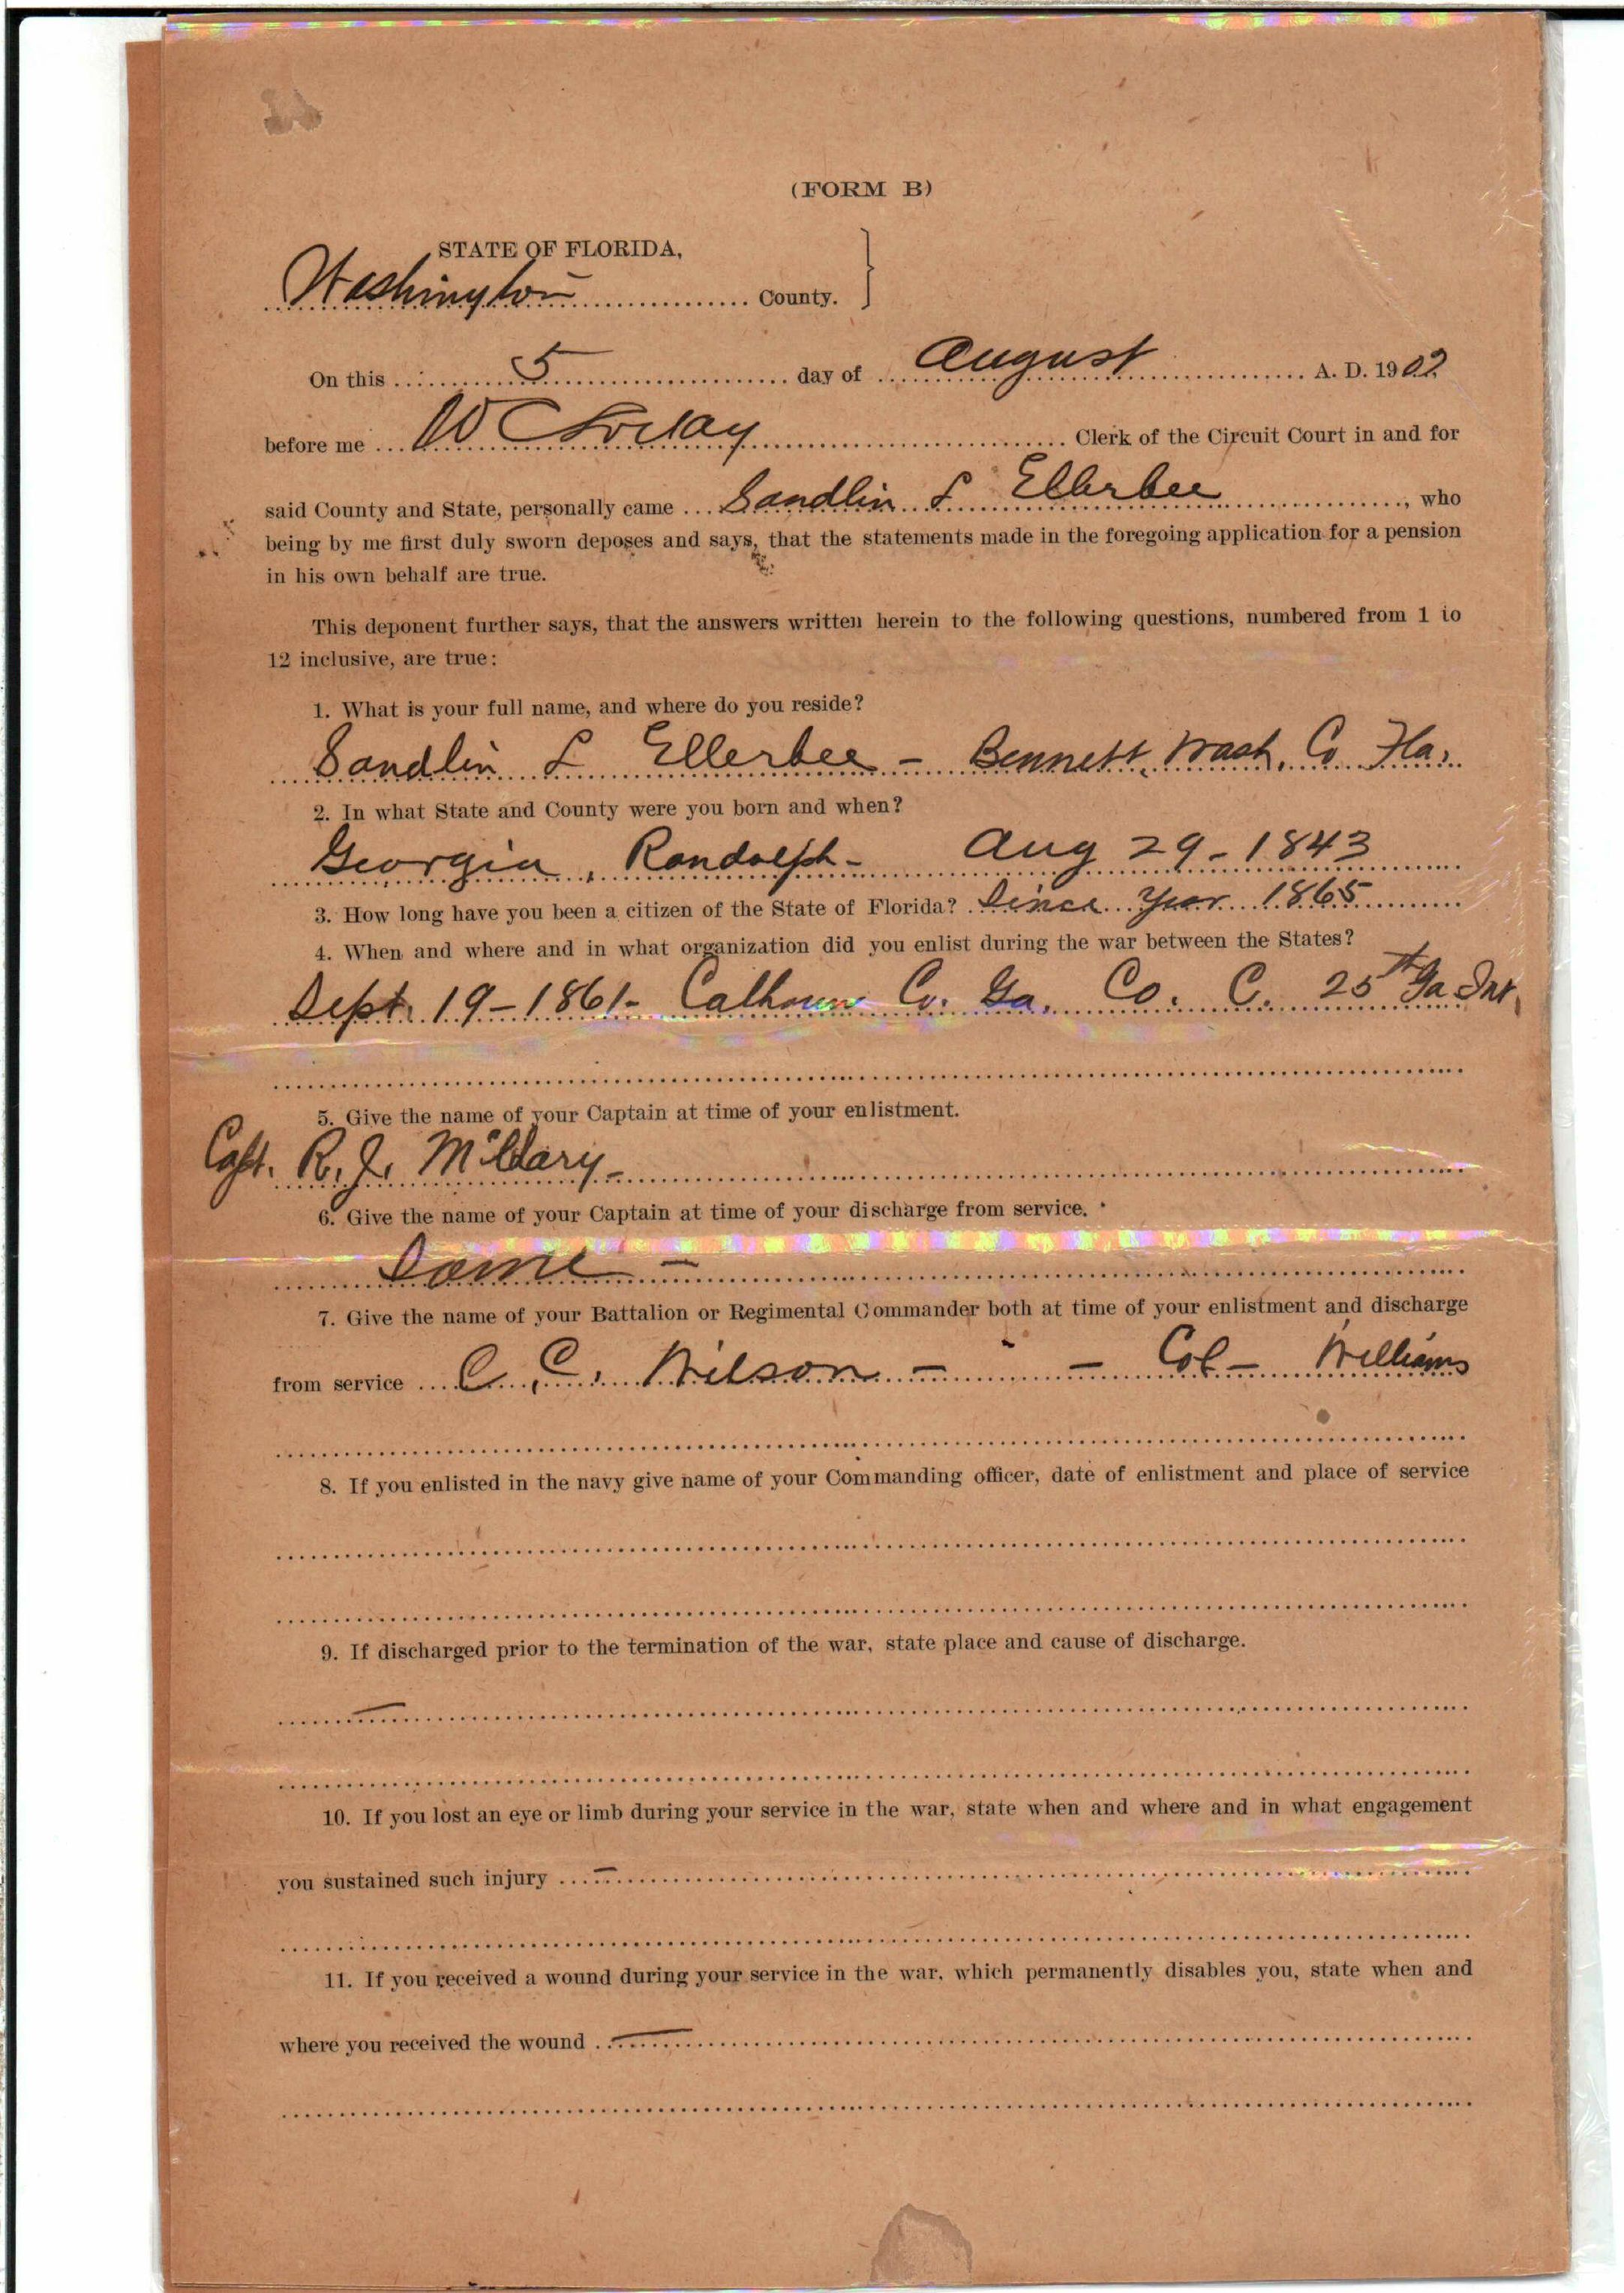 (FORM B)
STATE OF FLORIDA,
Washington County.
On this 5 day of August A. D. 1902
before me W C Clerk of the Circuit Court in and for
said County and State, personally came Sandlin L Ellerbee, who
being by me first duly sworn deposes and says, that the statements made in the foregoing application for a pension
in his own behalf are true.
This deponent further says, that the answers written herein to the following questions, numbered from 1 to
12 inclusive, are true:
1. What is your full name, and where do you reside?
Sandlin L Ellerbee - Bennett, Wash. Co Fla.
2. In what State and County were you born and when?
Georgia, Randolph - Aug 29 - 1843
3. How long have you been a citizen of the State of Florida? Since Year 1865
4. When and where and in what organization did you enlist during the war between the States?
Sept. 19 - 1861 - Calhoun Co. Ga. Co. C. 25th Ga Inf.
5. Give the name of your Captain at time of your enlistment.
Capt. R. J.
6. Give the name of your Captain at time of your discharge from service.
Same -
7. Give the name of your Battalion or Regimental Commander both at time of your enlistment and discharge
from service C. C. Wilson - - Col - Williams
8. If you enlisted in the navy give name of your Commanding officer, date of enlistment and place of service
9. If discharged prior to the termination of the war, state place and cause of discharge.
—
10. If you lost an eye or limb during your service in the war, state when and where and in what engagement
you sustained such injury —
11. If you received a wound during your service in the war, which permanently disables you, state when and
where you received the wound —